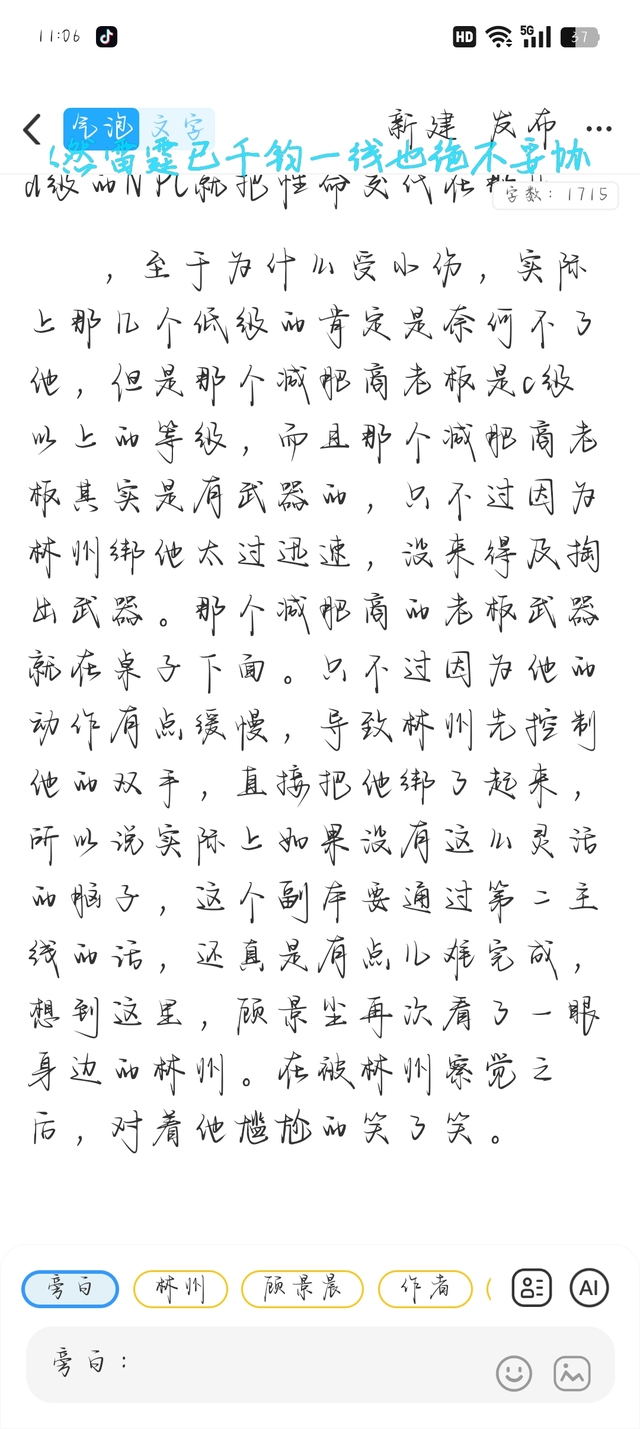 11:06 HD 5G 37
气泡 文字 新建 发布
然雷霆已千钧一线也绝不要协
d级的NPC就把性命交代在
字数：1715
，至于为什么受小伤，实际
上那几个低级的肯定是奈何不了
他，但是那个减肥商老板是c级
以上的等级，而且那个减肥商老
板其实是有武器的，只不过因为
林州绑他太过迅速，没来得及掏
出武器。那个减肥商的老板武器
就在桌子下面。只不过因为他的
动作有点缓慢，导致林州先控制
他的双手，直接把他绑了起来，
所以说实际上如果没有这么灵活
的脑子，这个副本要通过第二主
线的话，还真是有点儿难完成，
想到这里，顾景尘再次看了一眼
身边的林州。在被林州察觉之
后，对着他尴尬的笑了笑。
旁白 林州 顾景晨 作者 AI
旁白：